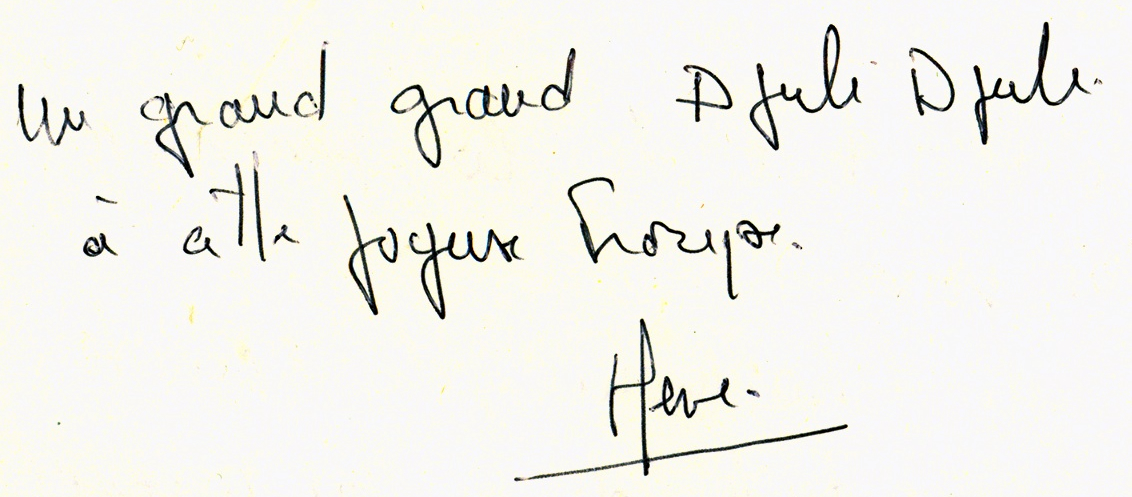 Un grand grand Djuli Djuli.
à cette joyeuse troupe.
Herve.